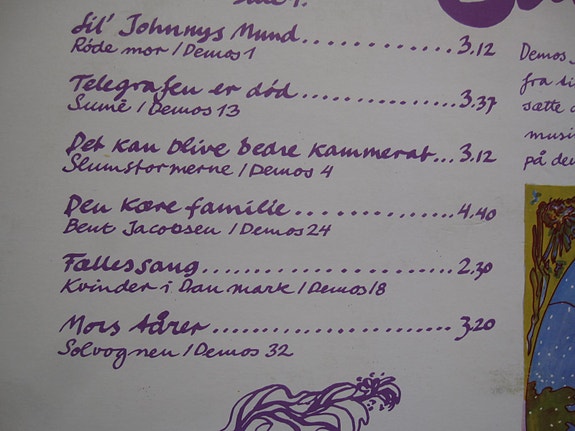 Side 1.
Lil' Johnnys Mund.............. 3.12
Röde mor / Demos 1
Telegrafen er död.............. 3.37
Sumē / Demos 13
Det kan blive bedre kammerat... 3.12
Slumstormerne / Demos 4
Den kære familie............. 4.40
Bent Jacobsen / Demos 24
Fællessang..................... 2.30
Kvinder i Danmark / Demos 18
Mors tårer..................... 3.20
Solvognen / Demos 32
Demos
fra
sætte
musi
på den